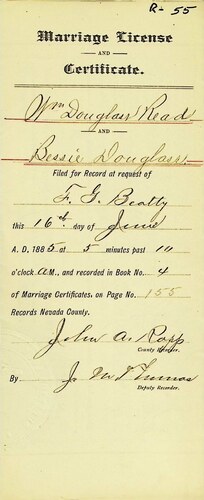 R-55
Marriage License
AND
Certificate.
Wm Douglass Read
AND
Bessie Douglass.
Filed for Record at request of
F. G. Beatty
this 16th day of June
A. D. 1885 at 5 minutes past 10
o'clock A.M., and recorded in Book No. 4
of Marriage Certificates, on Page No. 155
Records Nevada County.
John A. Rapp
County Recorder.
By J. M. Thomas
Deputy Recorder.